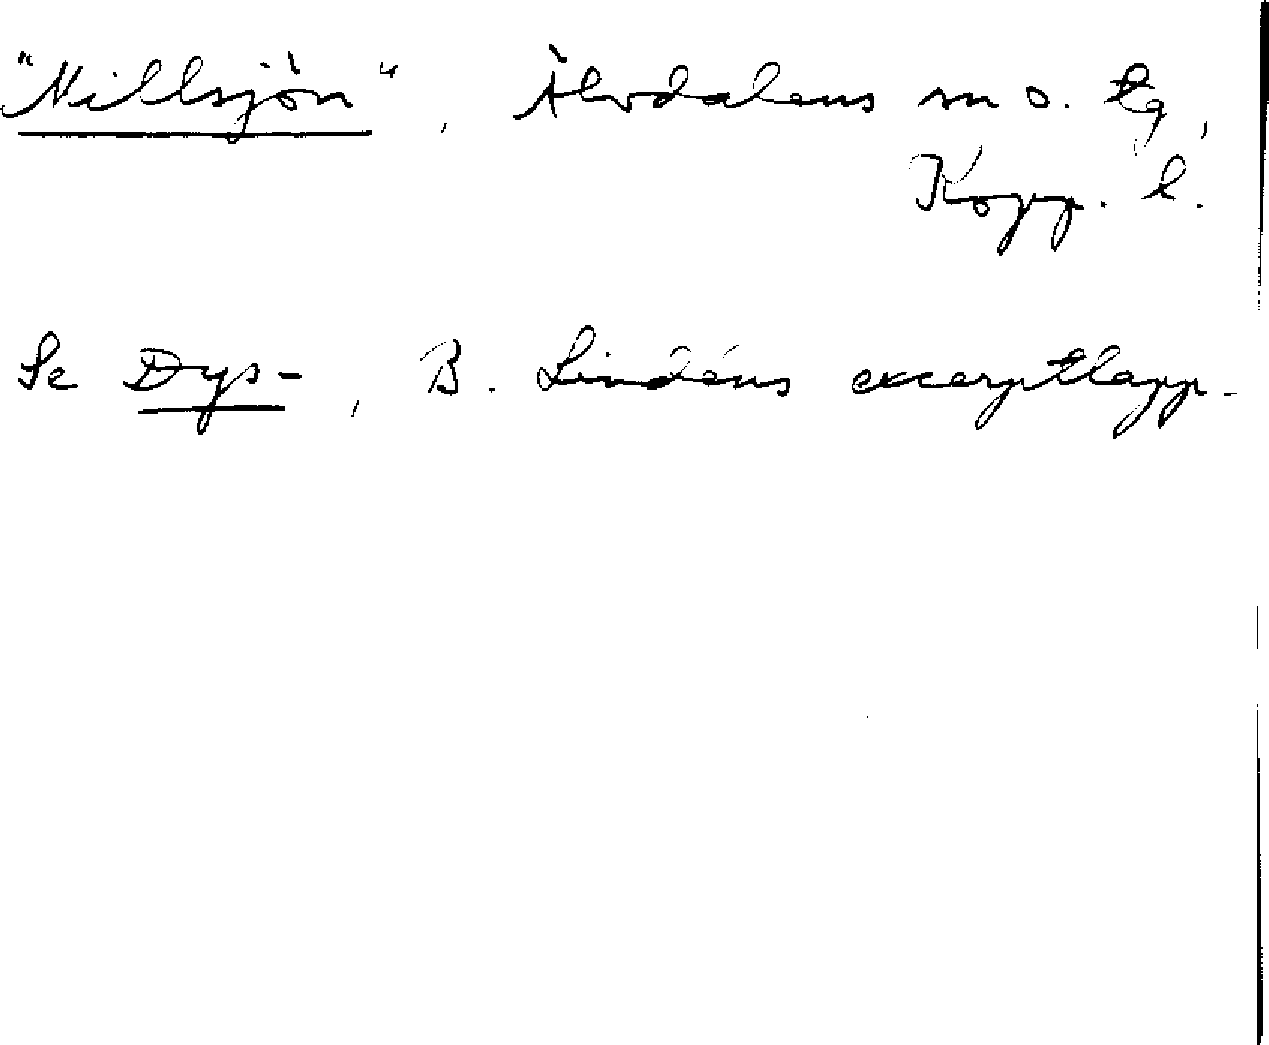 "Nillsjön", Älvdalens m o. tg,
Kopp. l.
Se Dys-, B. Lindéns excerptlapp.